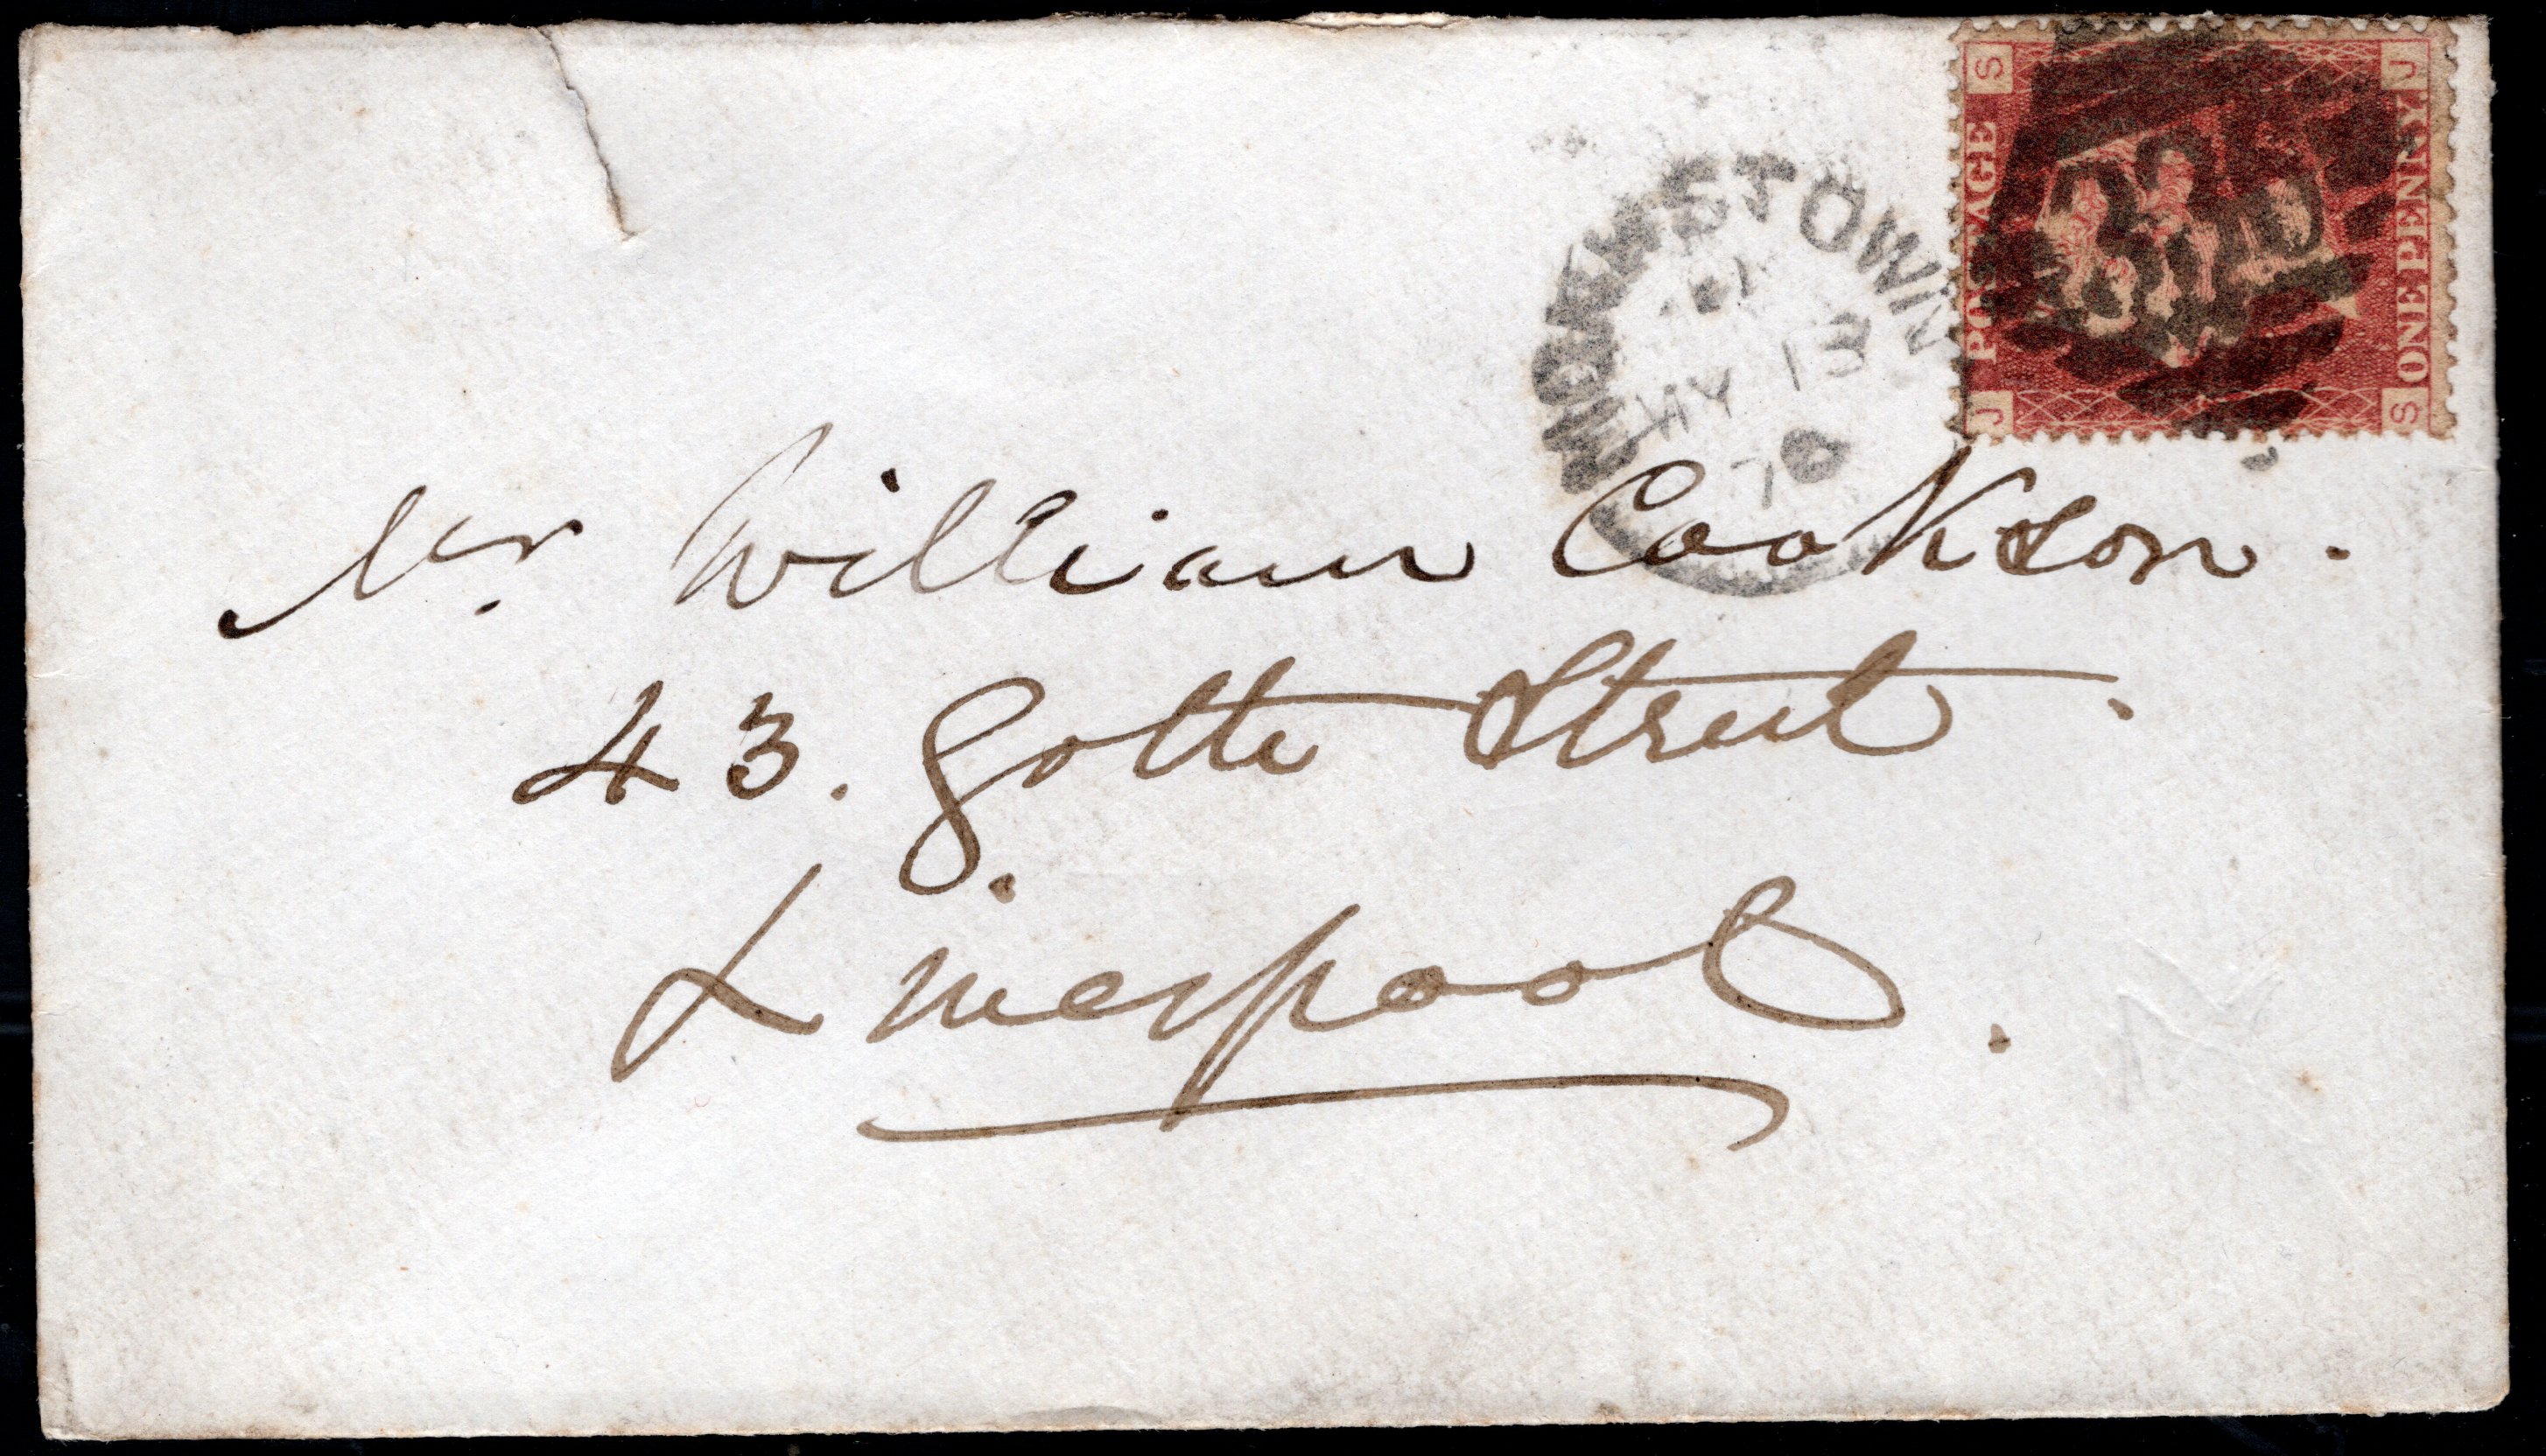 S J
POSTAGE
ONE PENNY
J S
MY 13
70
Mr. William Cookson.
43. Gotte Street.
Liverpool.